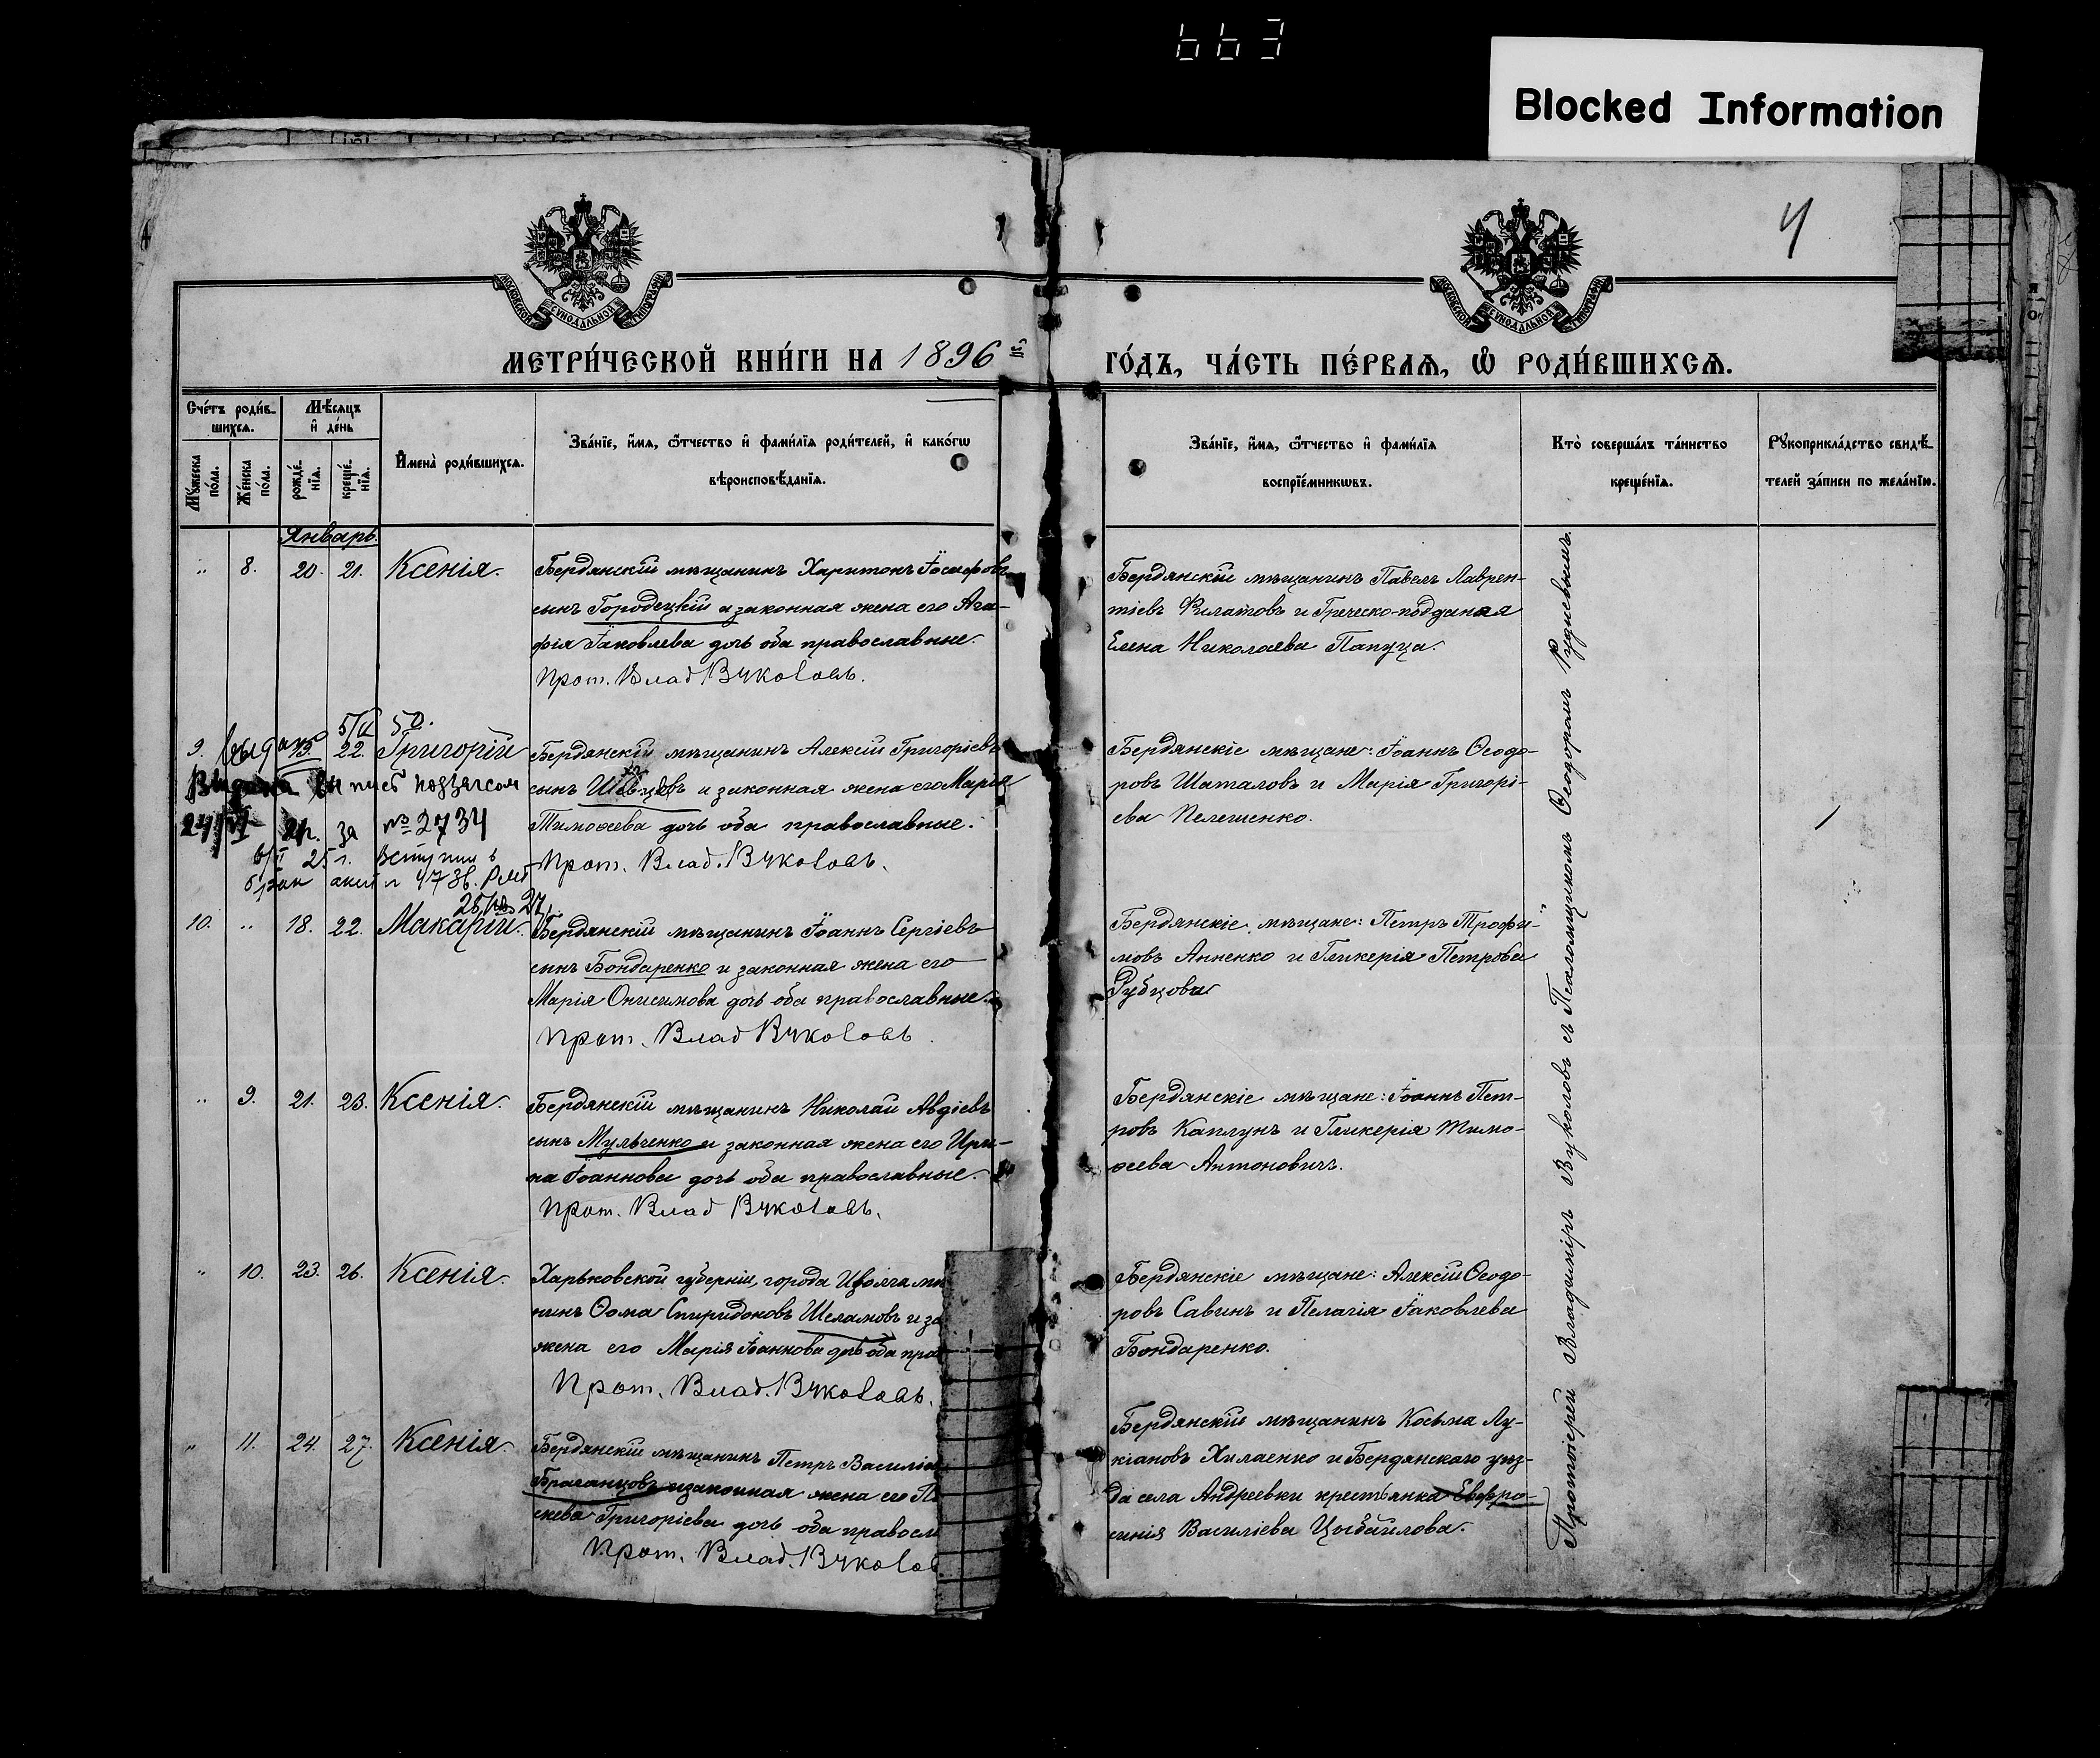 663
Blocked Information
4
МОСКОВСКОЙ СѴНОДАЛЬНОЙ ТИПОГРАФІИ
МОСКОВСКОЙ СѴНОДАЛЬНОЙ ТИПОГРАФІИ
МЕТРИ́ЧЕСКОЙ КНИ́ГИ НА 1896 й
ГО́ДЪ, ЧА́СТЬ ПЕ́РВАЯ, Ѡ РОДИ́ВШИХСЯ.
Сче́тъ роди́в-
шихся.
Мѣ́сяцъ
и҆ де́нь
Мꙋ́жеска по́ла.
Же́нска по́ла.
рожде́-нїя.
креще́-нїя.
И҆мена̀ роди́вшихся.
Зва́нїе, и҆́мя, ѻ҆́тчество и҆ фами́лїя роди́телей, и҆ како́гѡ
вѣроисповѣ́данїя.
Зва́нїе, и҆́мя, ѻ҆́тчество и҆ фами́лїя
воспрїе́мникѡвъ.
Кто̀ соверша́лъ та́инство
креще́нїя.
Рꙋкоприкла́дство свидѣ́-
телей за́писи по жела́нїю.
Январь.
" 8. 20. 21. Ксенія.
Бердянскій мѣщанинъ Харитонъ Іосифовъ
сынъ Городецкій и законная жена его Ага-
фія Іаковлева дочь оба православные.
Прот. Влад Вуколовъ.
Бердянскій мѣщанинъ Павелъ Лаврен-
тіевъ Филатовъ и Греческо-подданая
Елена Николаева Папуца.
5/II 50.
9. выдано 19. 22. Григорій
Выдана выпись подзагсом
24/VI 24. за № 2734
6/I 25 г. вступил в
брак акт № 473б.
25/ 27
Бердянскій мѣщанинъ Алексій Григоріевъ
сынъ Швецовъ и законная жена его Марія
Тимоѳеева дочь оба православные.
Прот. Влад. Вуколовъ.
Бердянскіе мѣщане: Іоаннъ Ѳеодо-
ровъ Шаталовъ и Марія Григорі-
ева Пелешенко.
10. " 18. 22. Макарій.
Бердянскій мѣщанинъ Іоаннъ Сергіевъ
сынъ Бондаренко и законная жена его
Марія Онисимова дочь оба православные.
Прот. Влад Вуколовъ.
Бердянскіе мѣщане: Петръ Трофи-
мовъ Анненко и Гликерія Петрова
Рубцова
" 9. 21. 23. Ксенія.
Бердянскій мѣщанинъ Николай Авдіевъ
сынъ Мульченко и законная жена его Ири-
на Іоаннова дочь оба православные.
Прот. Влад Вуколовъ.
Бердянскіе мѣщане: Іоаннъ Пет-
ровъ Каплунъ и Гликерія Тимо-
ѳеева Антоновичъ.
" 10. 23. 26. Ксенія.
Харьковской губерніи, города Изюма мѣ
нинъ Ѳома Спиридоновъ Шеламовъ и за
жена его Марія Іоаннова дочь оба пра
Прот. Влад. Вуколовъ.
Бердянскіе мѣщане: Алексій Ѳеодо-
ровъ Савинъ и Пелагія Іаковлева
Бондаренко.
" 11. 24. 27. Ксенія.
Бердянскій мѣщанинъ Петръ Василіе
Браганцовъ и законная жена его Па
скева Григоріева дочь оба правосл
Прот. Влад. Вуколов
Бердянскій мѣщанинъ Косьма Лу-
кіановъ Хилаенко и Бердянскаго уѣз-
да села Андреевки крестьянка Евфро-
синія Василіева Цыбайлова.
Протоіерей Владиміръ Вуколовъ съ Псаломщикомъ Ѳеодоромъ Рудневымъ.